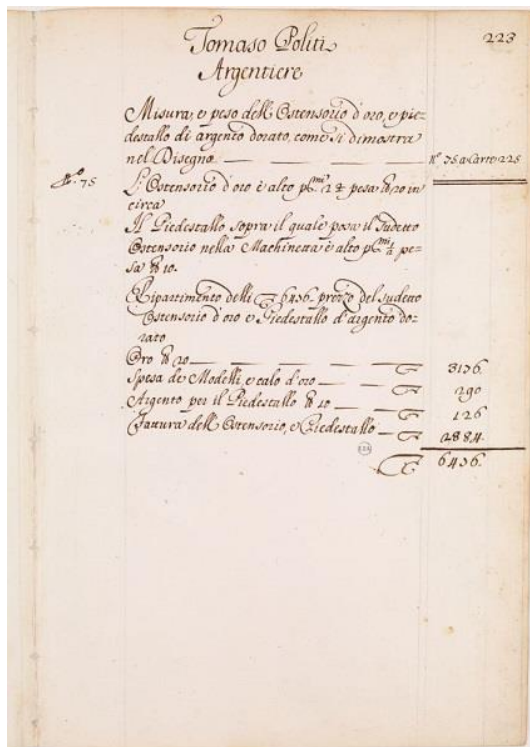 223
Tomaso Politi
Argentiere
Misura, e peso dell' Ostensorio d'oro, e pie-
destallo di argento dorato, come si dimostra
nel Disegno. — N.º 75 a Carte 225
N.º 75
L' Ostensorio d'oro è alto p.mi 2 pesa 20 in
circa
Il Piedestallo sopra il quale posa il sudetto
Ostensorio nella Machinetta è alto p.mi pe-
sa 10.
Ripartimento delli 6436. prezzo del sudetto
Ostensorio d'oro e Piedestallo d'argento do-
rato
Oro 20 — 3136.
Spesa de Modelli, e calo d'oro — 290
Argento per il Piedestallo 10 — 126
Fattura dell' Ostensorio, e Piedestallo — 2884.
6436.